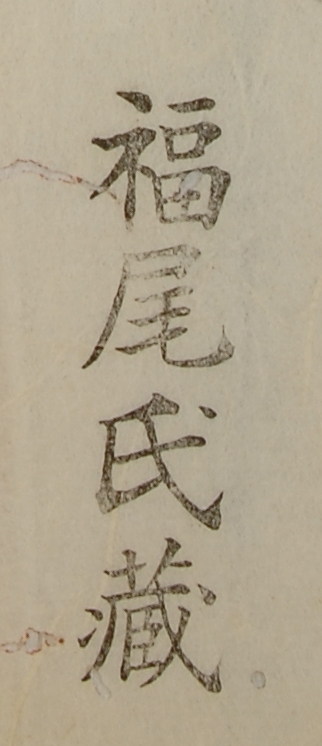 福尾氏藏